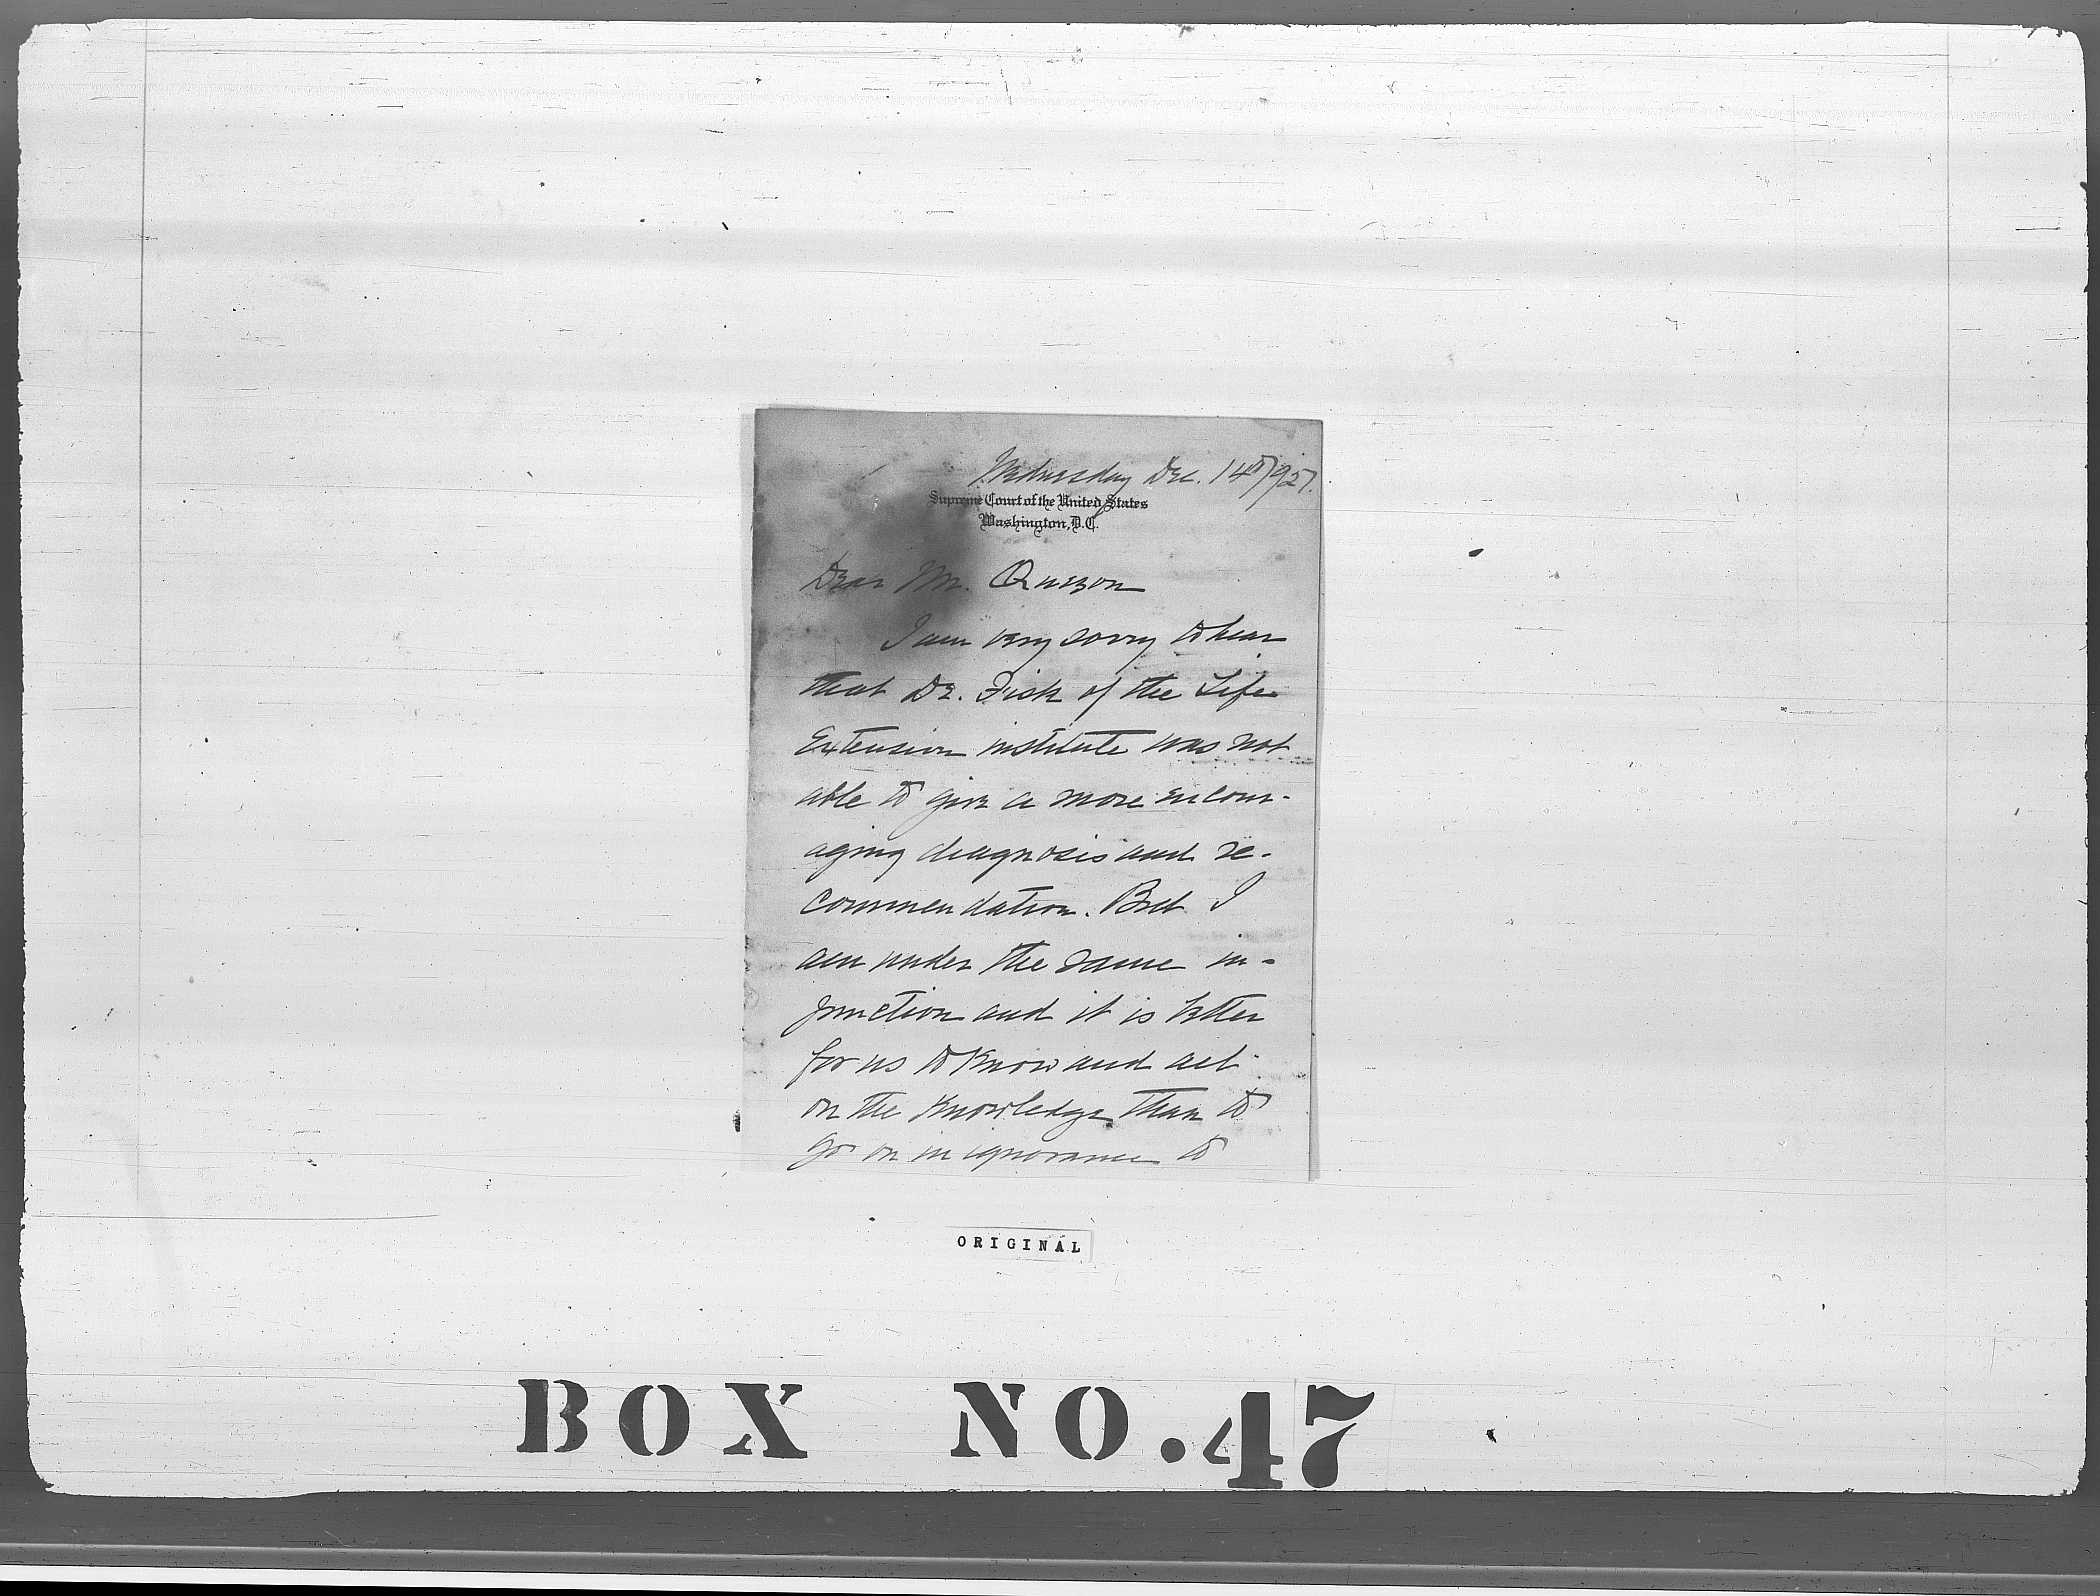 Wednesday Dec. 14th/927.
Supreme Court of the United States
Washington, D.C.
Dear Mr. Quezon
I am very sorry to hear
that Dr. Fisk of the Life
Extension institute was not
able to give a more encour-
aging diagnosis and re-
commendation. But I
am under the same in-
junction and it is better
for us to know and act
on the knowledge than to
go on in ignorance to
ORIGINAL
BOX NO. 47